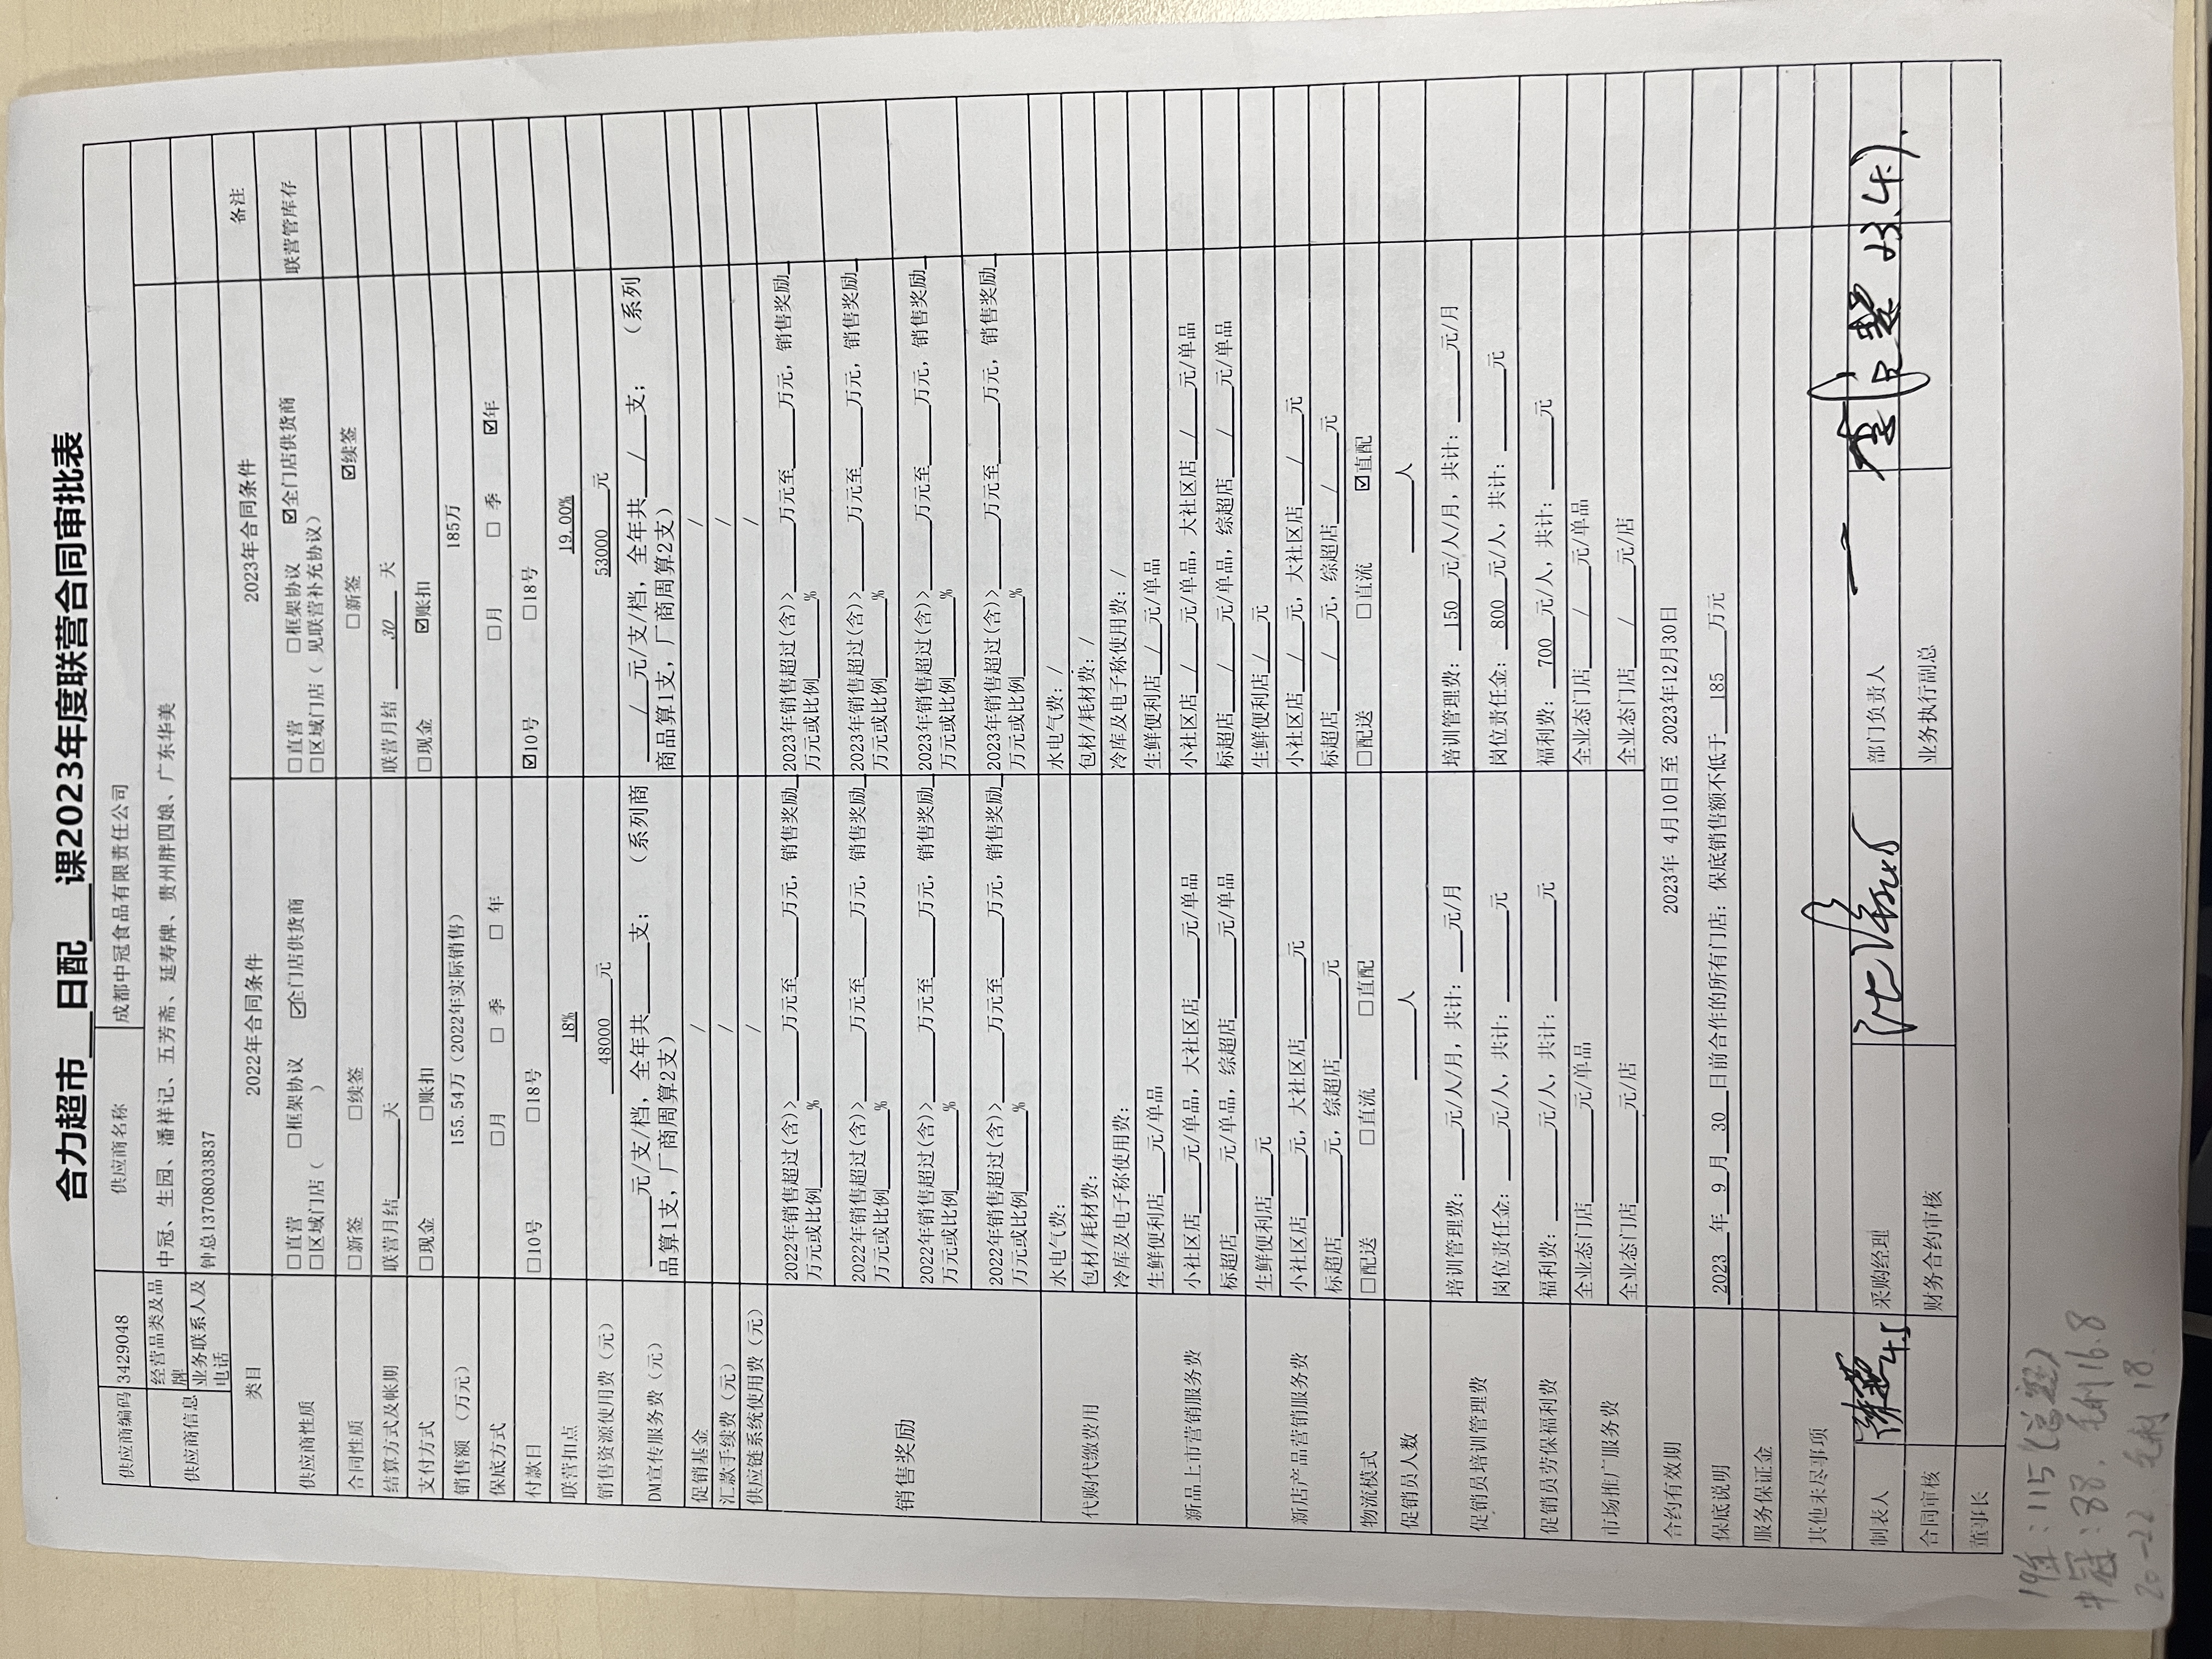 合力超市 日配 课2023年度联营合同审批表
供应商编码 3429048 供应商名称 成都中冠食品有限责任公司
供应商信息 经营品类及品牌 中冠、生园、潘祥记、五芳斋、延寿牌、贵州胖四娘、广东华美
业务联系人及电话 钟总13708033837
类目 2022年合同条件 2023年合同条件 备注
供应商性质 □直营 □框架协议 ☑全门店供货商 □直营 □框架协议 ☑全门店供货商 联营管库存
□区域门店（ ） □区域门店（ 见联营补充协议）
合同性质 □新签 □续签 □新签 ☑续签
结算方式及帐期 联营月结____天 联营月结 30 天
支付方式 □现金 □账扣 □现金 ☑账扣
销售额（万元） 155.54万（2022年实际销售） 185万
保底方式 □月 □ 季 □ 年 □月 □ 季 ☑年
付款日 □10号 □18号 ☑10号 □18号
联营扣点 18% 19.00%
销售资源使用费（元） 48000 元 53000 元
DM宣传服务费（元） ____元/支/档，全年共____支； （系列商 / 元/支/档，全年共 / 支； （系列
品算1支，厂商周算2支） 商品算1支，厂商周算2支）
促销基金 / /
汇款手续费（元） / /
供应链系统使用费（元） / /
销售奖励 2022年销售超过(含)>____万元至____万元，销售奖励_ 2023年销售超过(含)>____万元至____万元，销售奖励_
万元或比例____% 万元或比例____%
2022年销售超过(含)>____万元至____万元，销售奖励_ 2023年销售超过(含)>____万元至____万元，销售奖励_
万元或比例____% 万元或比例____%
2022年销售超过(含)>____万元至____万元，销售奖励_ 2023年销售超过(含)>____万元至____万元，销售奖励_
万元或比例____% 万元或比例____%
2022年销售超过(含)>____万元至____万元，销售奖励_ 2023年销售超过(含)>____万元至____万元，销售奖励_
万元或比例____% 万元或比例____%
代购代缴费用 水电气费： 水电气费：/
包材/耗材费： 包材/耗材费：/
冷库及电子称使用费： 冷库及电子称使用费：/
新品上市营销服务费 生鲜便利店____元/单品 生鲜便利店 / 元/单品
小社区店____元/单品，大社区店____元/单品 小社区店 / 元/单品，大社区店 / 元/单品
标超店____元/单品，综超店____元/单品 标超店 / 元/单品，综超店 / 元/单品
新店产品营销服务费 生鲜便利店____元 生鲜便利店 / 元
小社区店____元，大社区店____元 小社区店 / 元，大社区店 / 元
标超店____元，综超店____元 标超店 / 元，综超店 / 元
物流模式 □配送 □直流 □直配 □配送 □直流 ☑直配
促销员人数 ____人 ____人
促销员培训管理费 培训管理费：____元/人/月，共计：____元/月 培训管理费： 150 元/人/月，共计：____元/月
岗位责任金：____元/人，共计：____元 岗位责任金： 800 元/人，共计：____元
促销员劳保福利费 福利费：____元/人，共计：____元 福利费： 700 元/人，共计：____元
市场推广服务费 全业态门店____元/单品 全业态门店 / 元/单品
全业态门店____元/店 全业态门店 / 元/店
合约有效期 2023年 4月10日至 2023年12月30日
保底说明 2023 年 9 月 30 日前合作的所有门店：保底销售额不低于 185 万元
服务保证金
其他未尽事项
制表人 采购经理 部门负责人
合同审核 财务合约审核 业务执行副总
董事长
中冠：88. 毛利16.8
20-22 毛利 18.